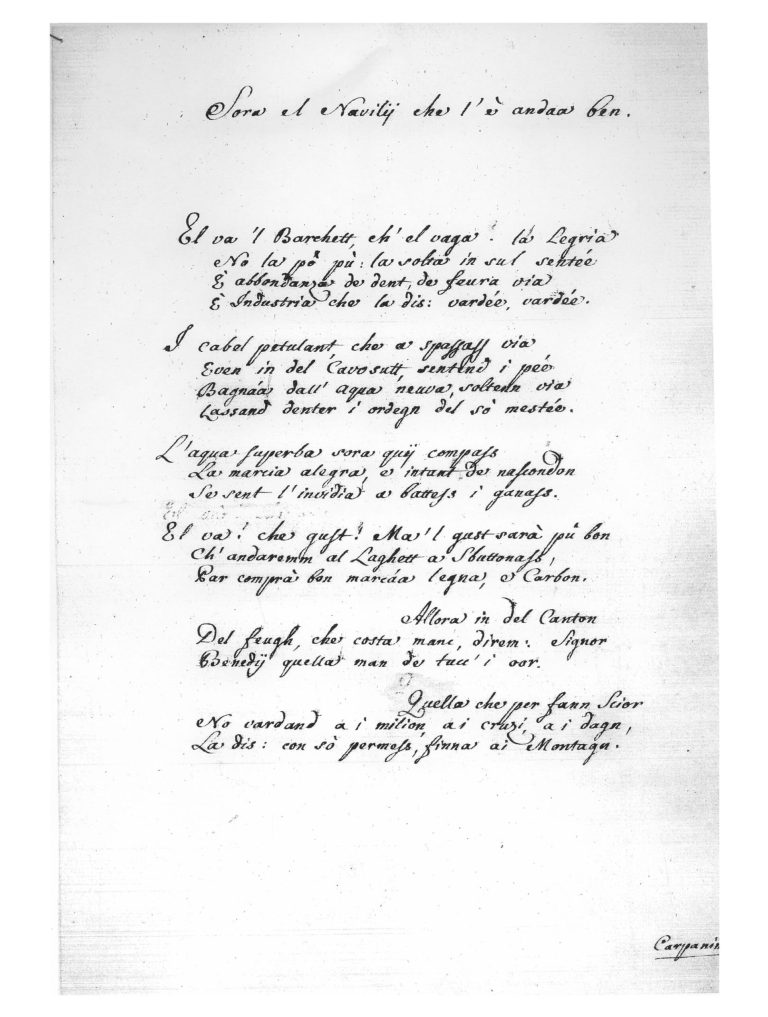 Sora el Navilij che l'è andaa ben.
El va 'l Barchett, ch'el vaga. la Legria
No la pò pù: la solta in sul sentée
E abbondanza de dent, de feura via
E Industria che la dis: vardée, vardée.
I cabel petulant che a spassass via
Even in del Cavosutt, sentend i pée
Bagnáa dall' aqua neuva, soltenn via
Lassand denter i ordegn del sò mestée.
L'aqua superba sora quij compass
La marcia alegra, e intant de nascondon
Se sent l'invidia a battess i ganass.
El va! che gust! Ma 'l gust sarà pù bon
Ch'andaremm al Laghett a Sbuttonass,
Par comprà bon marcáa legna, e Carbon.
Allora in del Canton
Del feugh, che costa manc, direm: Signor
Benedij quella man de tucc' i oor.
Quella che per fann Scior
No vardand a i milion, a i cruzi, a i dagn,
La dis: con sò permess, finna ai Montagn.